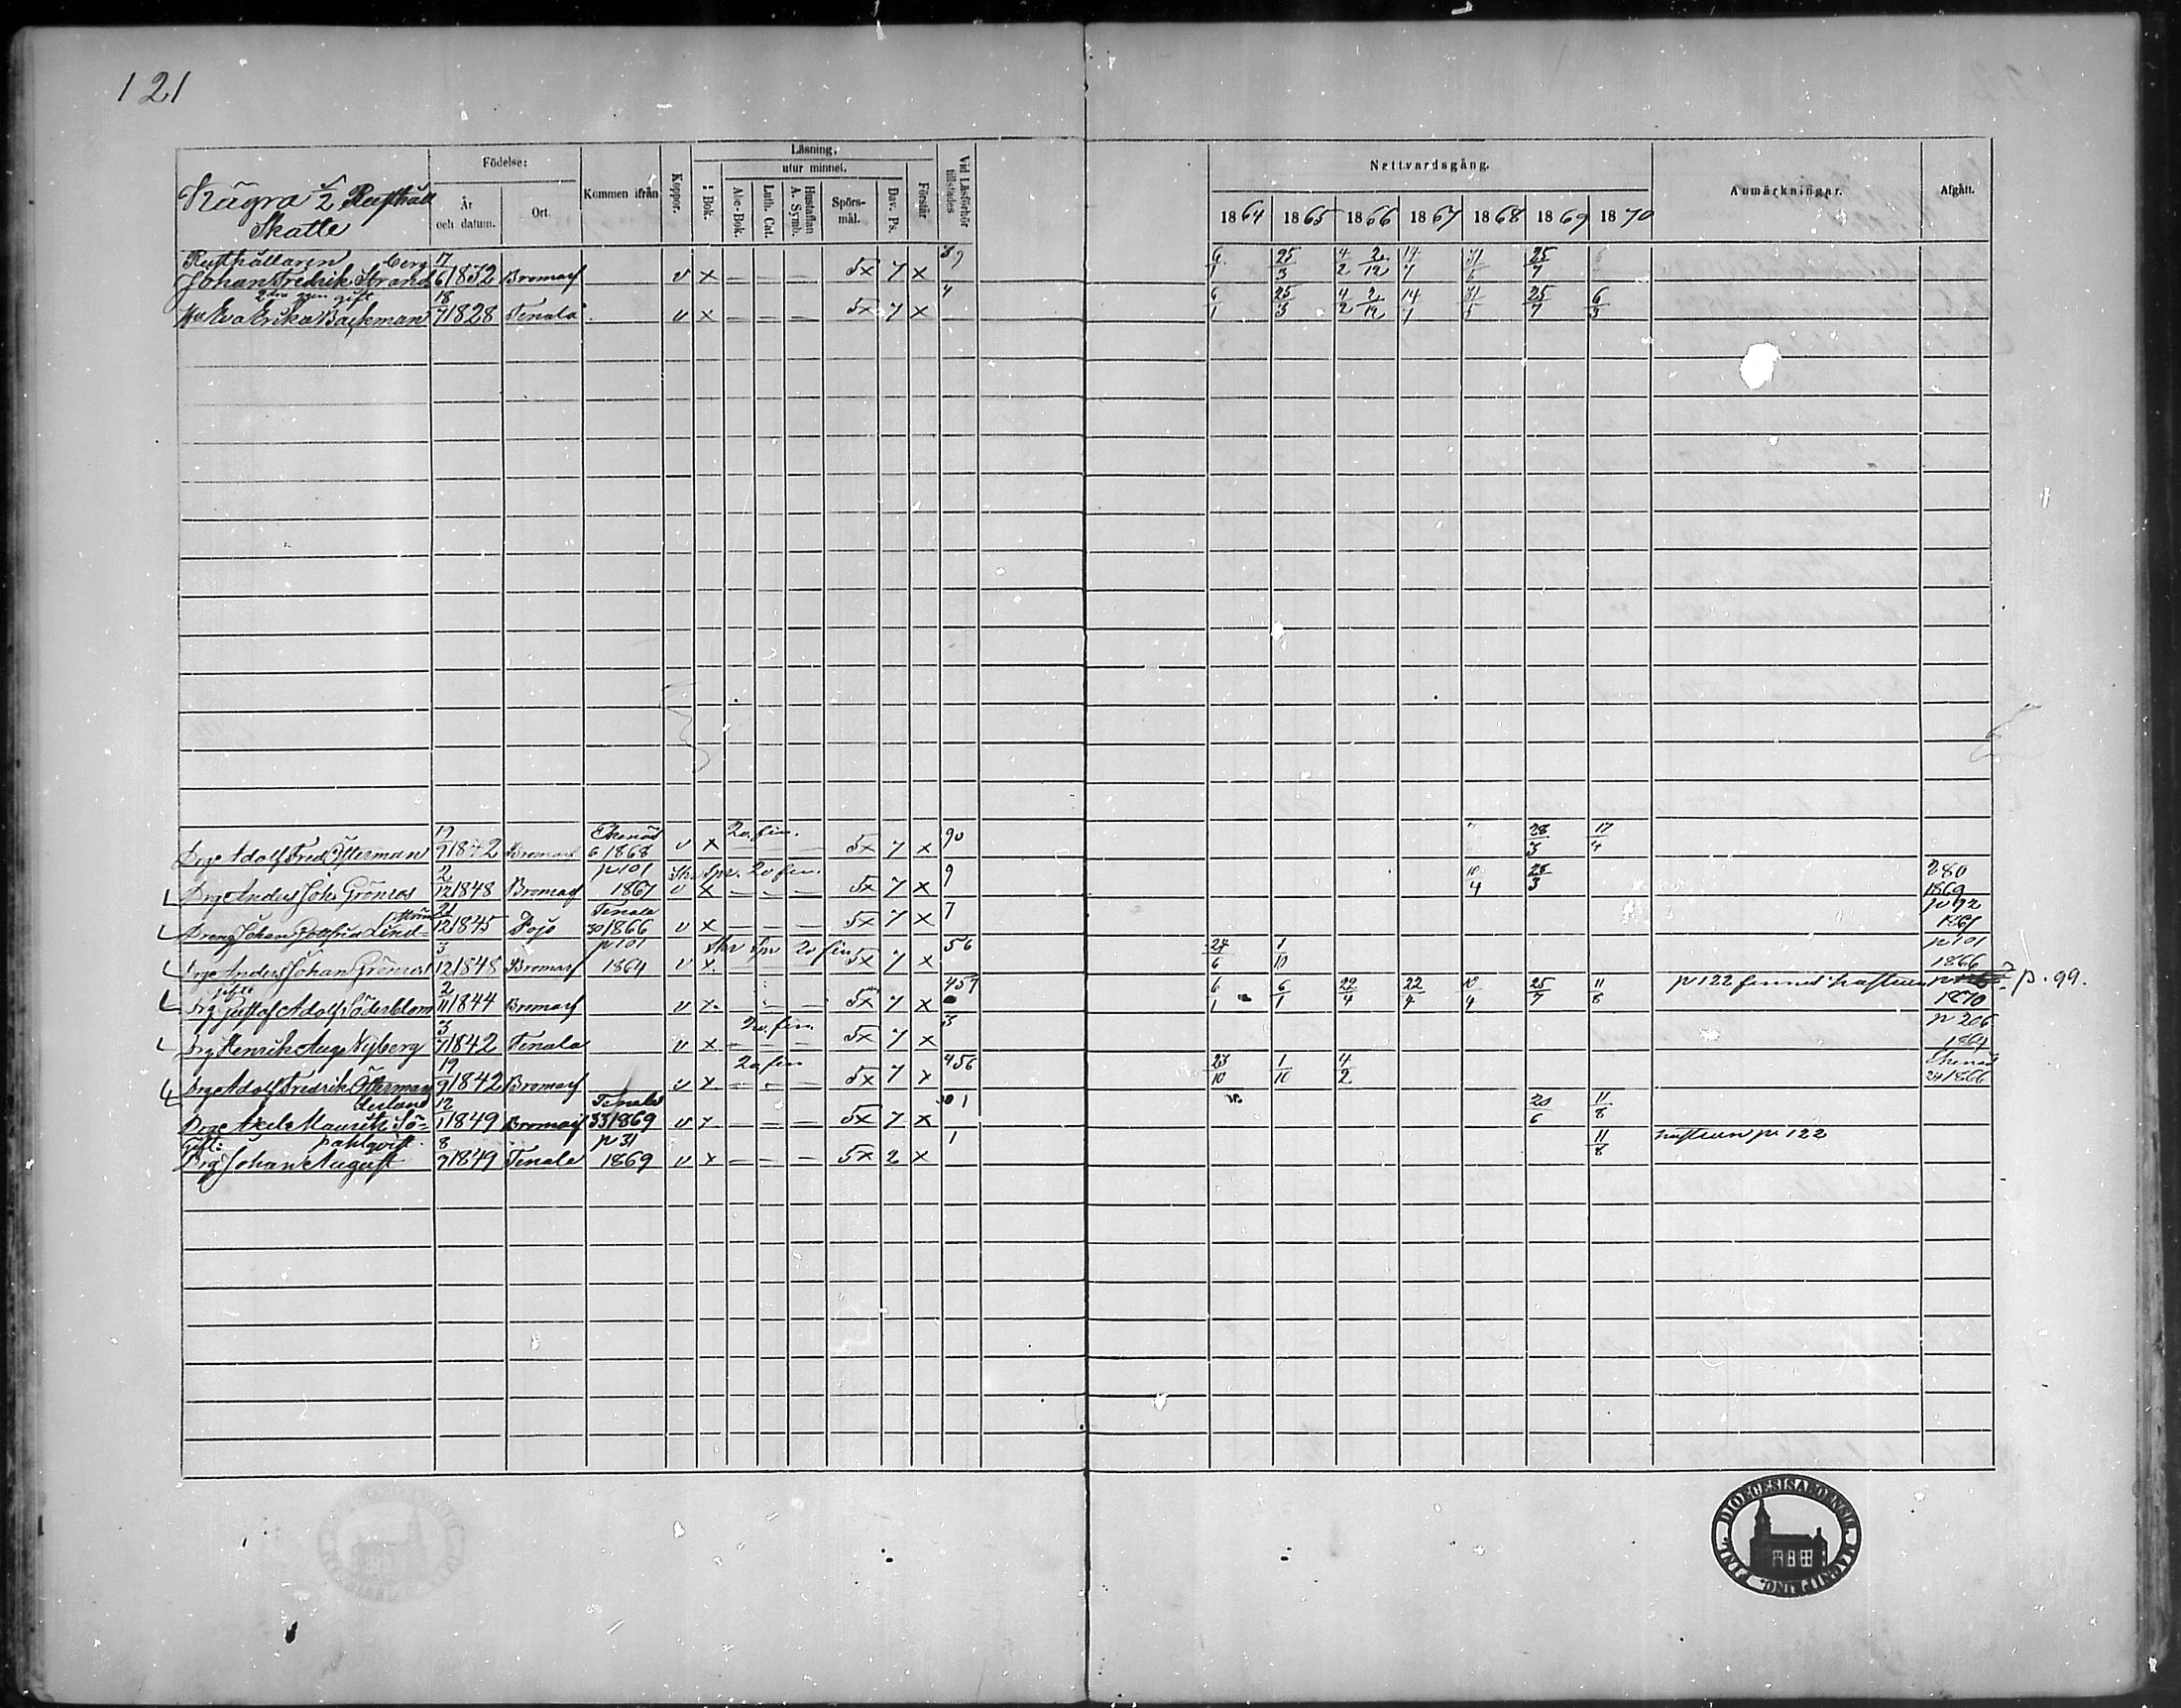 121
Födelse:
Kommen ifrån
Koppor.
Läsning.
utur minnet.
i Bok.
Abc-Bok.
Luth. Cat.
Hustaflan A. Symb.
Spörs-mål.
Dav. Ps.
Förstår
Vid Läsförhör tillstädes
Nattvardsgång.
Anmärkningar.
Afgått.
År och datum.
Ort.
1864 1865 1866 1867 1868 1869 1870
Skatte
Rusthållaren berg 17
Johan Fredrik Strand 6 1832 Bromarf v x — — — 5x 7 x 6/1 25/3 4/2 2/12 14/7 31/5 25/7
18 4
Eva Erika Backman 7 1828 Tenala v x — — — 5x 7 x 6/1 25/3 4/2 2/12 14/7 31/5 25/7 6/3
19 Ekenäs 2 v. fin. 90
Drge Adolf Fred Österman 9 1842 Bromarf 6 1868 v x 5x 7 x 28/3 17/4
2 p 101 Skr. Spr. 2 v fin. 9 280
Drge Anders Joh. Grönros 12 1848 Bromarf 1867 v x — — — 5x 7 x 10/4 28/3 1869
21 Tenala 7 p 92
Dreng Johan Gottfrid Lind= ström 12 1845 Pojo 30 1866 v x — — — 5x 7 x 1867
3 p 101 Skr Spr 2 v fin 56 p 101
Drge Anders Johan Grönros 12 1848 Bromarf 1864 v x 5x 7 x 24/6 1/10 1866
gifte 2 457 p 122 finnes hustrun p. 99.
Drg Gustaf Adolf Söderblom 11 1844 Bromarf v x — — — 5x 7 x 6/1 6/1 22/4 22/4 10/4 25/7 11/8 1870
3 2 v. fin. 3 p 206
Drg Henrik Aug. Nyberg 7 1842 Tenala v x — — — 5x 7 x 1864
19 2 v fin 456 Ekenäs
Drge Adolf Fredrik Österman 9 1842 Bromarf v x — — — 5x 7 x 23/10 1/10 4/2 24 1866
12 Tenala 1
Drge Axel Maurits Sö= derlund 1 1849 Bromarf 33 1869 v x — — — 5x 7 x 20/6 11/8
Gift: Dahlqvist 8 p 31 1 hustrun p 122
Drg Johan August 9 1849 Tenala 1869 v x — — — 5x 2 x 11/8
FINL. DIOECESIS ABOENSIS MAGNI PRINC.